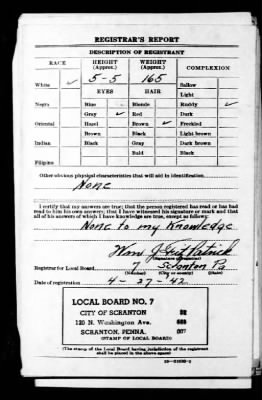 REGISTRAR'S REPORT
DESCRIPTION OF REGISTRANT
RACE HEIGHT (Approx.) WEIGHT (Approx.) COMPLEXION
White ✓ 5-5 165 Sallow
EYES HAIR Light
Negro Blue Blonde Ruddy ✓
Gray ✓ Red Dark
Oriental Hazel Brown ✓ Freckled
Brown Black Light brown
Indian Black Gray Dark brown
Bald Black
Filipino
Other obvious physical characteristics that will aid in identification
None
I certify that my answers are true; that the person registered has read or has had
read to him his own answers; that I have witnessed his signature or mark and that
all of his answers of which I have knowledge are true, except as follows:
None to my Knowledge
Wm J. Fitzpatrick
(Signature of registrar)
Registrar for Local Board Scranton Pa
(Number) (City or county) (State)
Date of registration 4-27-42
LOCAL BOARD NO. 7
CITY OF SCRANTON 32
120 N. Washington Ave. 069
SCRANTON, PENNA. 007
(STAMP OF LOCAL BOARD)
(The stamp of the Local Board having jurisdiction of the registrant
shall be placed in the above space)